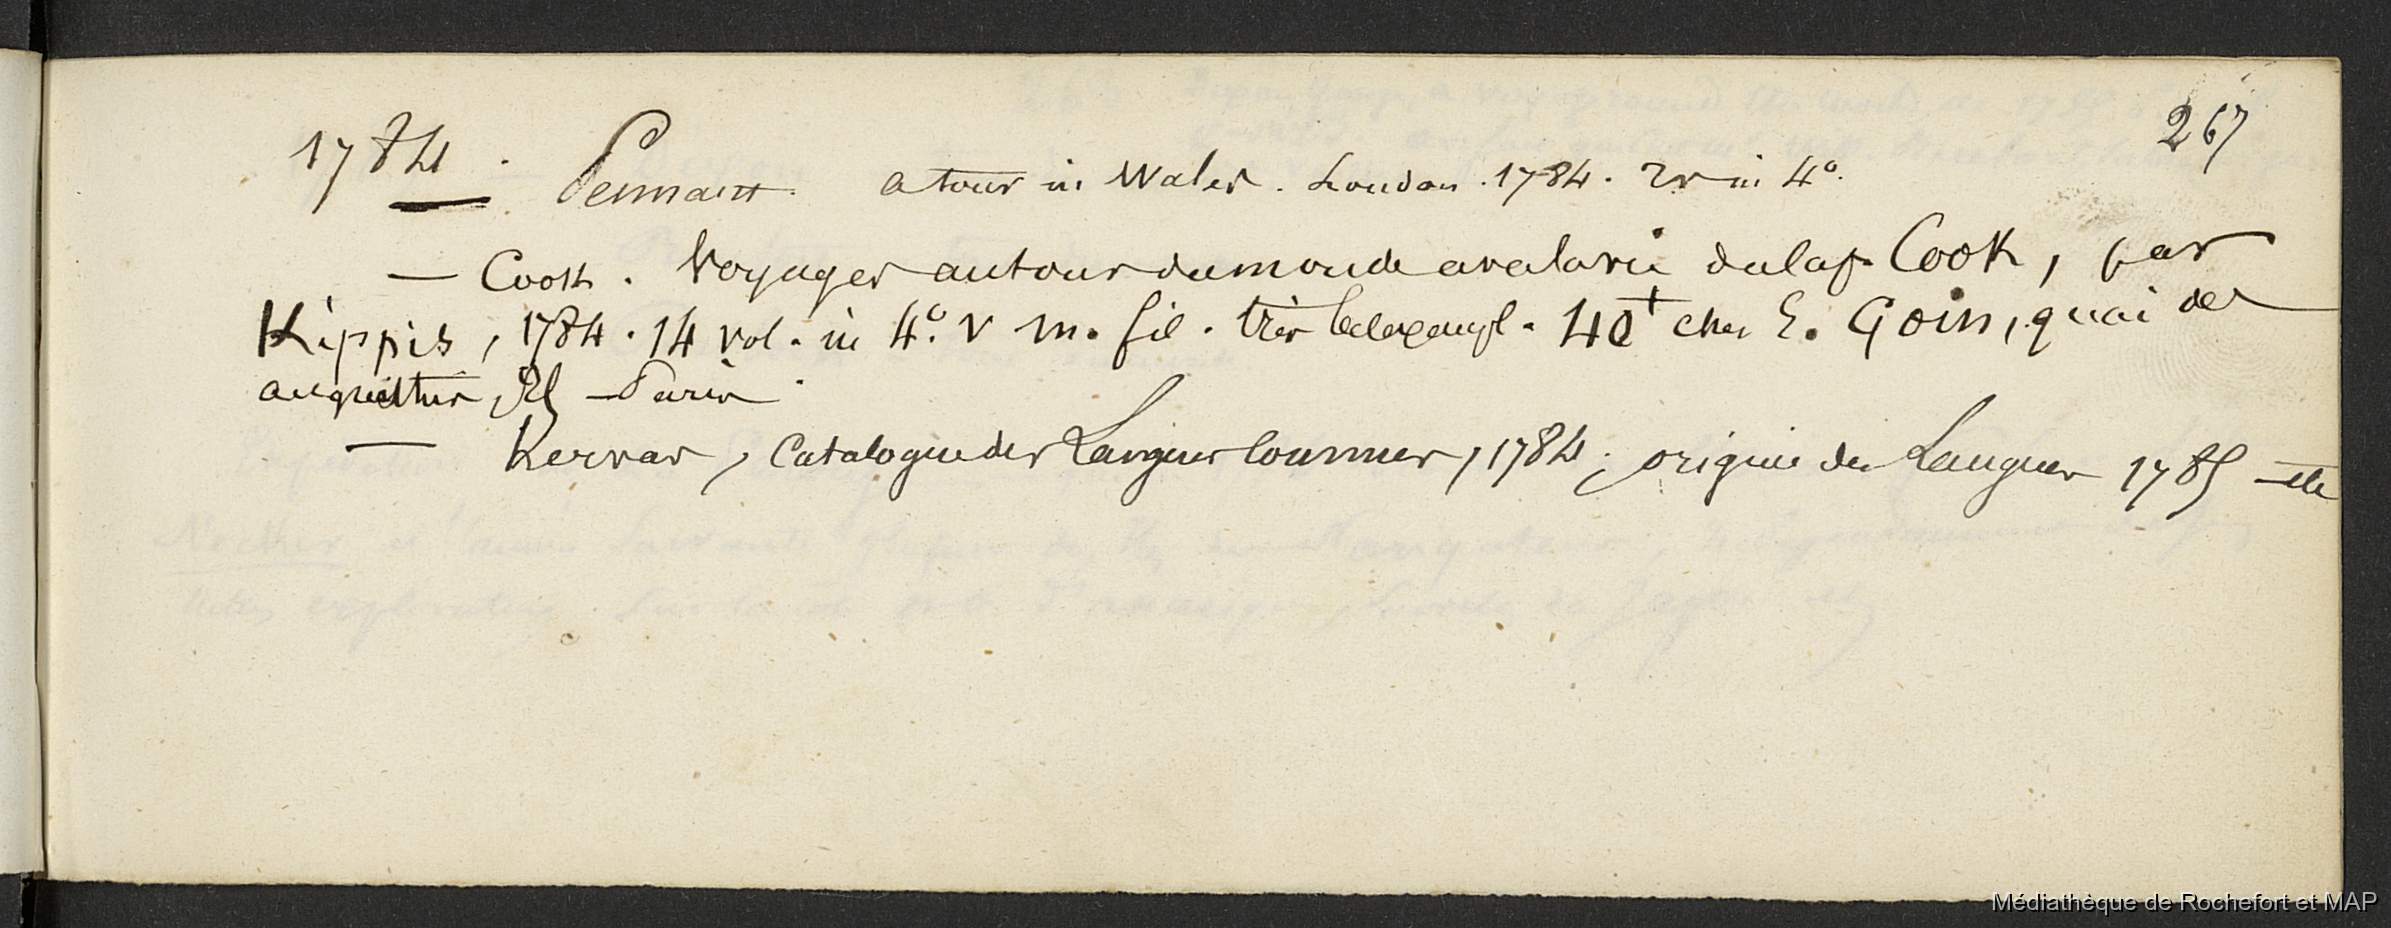 267
1784 . Pennant . a tour in Wales . London . 1784 . 2 v in 4°.
— Cook . Voyages autour du monde avec la vie du Cap. Cook, par
Kippis, 1784 . 14 vol. in 4°. v m. fil . très bel exempl. 40 chez E. Goin, quai des
augustins, — Paris .
— Hervas, Catalogue des Langues connues, 1784 ; origine des Langues 1785 — etc
Médiathèque de Rochefort et MAP